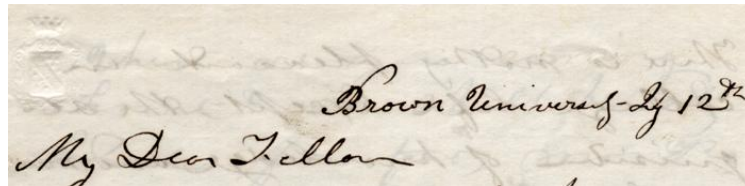 Brown University 12th
My Dear Fellow